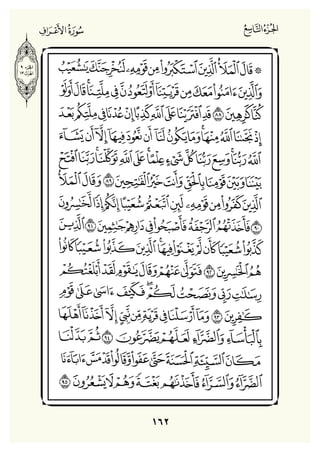 الجزء التاسع
سورة الأعراف
۞ قَالَ ٱلْمَلَأُ ٱلَّذِينَ ٱسْتَكْبَرُوا۟ مِن قَوْمِهِۦ لَنُخْرِجَنَّكَ يَٰشُعَيْبُ
وَٱلَّذِينَ ءَامَنُوا۟ مَعَكَ مِن قَرْيَتِنَآ أَوْ لَتَعُودُنَّ فِى مِلَّتِنَا قَالَ أَوَلَوْ
كُنَّا كَٰرِهِينَ ٨٨ قَدِ ٱفْتَرَيْنَا عَلَى ٱللَّهِ كَذِبًا إِنْ عُدْنَا فِى مِلَّتِكُم بَعْدَ
إِذْ نَجَّىٰنَا ٱللَّهُ مِنْهَا وَمَا يَكُونُ لَنَآ أَن نَّعُودَ فِيهَآ إِلَّآ أَن يَشَآءَ
ٱللَّهُ رَبُّنَا وَسِعَ رَبُّنَا كُلَّ شَىْءٍ عِلْمًا عَلَى ٱللَّهِ تَوَكَّلْنَا رَبَّنَا ٱفْتَحْ
بَيْنَنَا وَبَيْنَ قَوْمِنَا بِٱلْحَقِّ وَأَنتَ خَيْرُ ٱلْفَٰتِحِينَ ٨٩ وَقَالَ ٱلْمَلَأُ
ٱلَّذِينَ كَفَرُوا۟ مِن قَوْمِهِۦ لَئِنِ ٱتَّبَعْتُمْ شُعَيْبًا إِنَّكُمْ إِذًا لَّخَٰسِرُونَ
٩٠ فَأَخَذَتْهُمُ ٱلرَّجْفَةُ فَأَصْبَحُوا۟ فِى دَارِهِمْ جَٰثِمِينَ ٩١ ٱلَّذِينَ
كَذَّبُوا۟ شُعَيْبًا كَأَن لَّمْ يَغْنَوْا۟ فِيهَا ٱلَّذِينَ كَذَّبُوا۟ شُعَيْبًا كَانُوا۟
هُمُ ٱلْخَٰسِرِينَ ٩٢ فَتَوَلَّىٰ عَنْهُمْ وَقَالَ يَٰقَوْمِ لَقَدْ أَبْلَغْتُكُمْ
رِسَٰلَٰتِ رَبِّى وَنَصَحْتُ لَكُمْ فَكَيْفَ ءَاسَىٰ عَلَىٰ قَوْمٍ
كَٰفِرِينَ ٩٣ وَمَآ أَرْسَلْنَا فِى قَرْيَةٍ مِّن نَّبِىٍّ إِلَّآ أَخَذْنَآ أَهْلَهَا
بِٱلْبَأْسَآءِ وَٱلضَّرَّآءِ لَعَلَّهُمْ يَضَّرَّعُونَ ٩٤ ثُمَّ بَدَّلْنَا
مَكَانَ ٱلسَّيِّئَةِ ٱلْحَسَنَةَ حَتَّىٰ عَفَوا۟ وَّقَالُوا۟ قَدْ مَسَّ ءَابَآءَنَا
ٱلضَّرَّآءُ وَٱلسَّرَّآءُ فَأَخَذْنَٰهُم بَغْتَةً وَهُمْ لَا يَشْعُرُونَ ٩٥
١٦٢